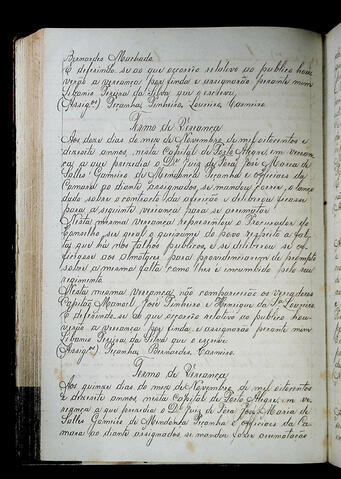 Bernardes Machado.
E deferindo-se ao que occorreo relativo ao publico hou-
verão a vereança por finda e assignarão perante mim
Libanio Pereira da Silva que o escrevi.
(Assig.os) Peçanha, Pinheiro, Loureiro, Carneiro.
Termo de Vereança
Aos doze dias do mez de Novembro de mil oitocentos e
dezesete annos, nesta Capital de Porto Alegre em verean-
ça a que presidio o Dr. Juiz de Fora José Maria de
Salles Gameiro de Mendonça Peçanha e officiaes da
Camara ao diante assignados, se mandou
sobre o contracto da afferição e deliberou
para a seguinte vereança para se arrematar.
Nesta mesma vereança representou o Procurador do
Conselho ser geral o queixume do povo respeito a fal-
ta que há nos talhos publicos, e se deliberou se of-
ficiasse aos Almotaces para providenciarem de prompto
sobre a mesma falta como lhes é incumbido pelo seu
regimento.
Nesta mesma vereança não comparecerão os vereadores
Capitão Manoel José Pinheiro e Henrique da Sa Loureiro.
E deferindo-se ao que occorreo relativo ao publico hou-
verão a vereança por finda, e assignarão perante mim
Libanio Pereira da Silva que o escrevi.
(Assig.os) Peçanha, Bernardes, Carneiro.
Termo de Vereança
Aos quinze dias do mez de Novembro de mil oitocentos
e dezesete annos, nesta Capital de Porto Alegre, em ve-
reança a que presidio o Dr. Juiz de Fora José Maria de
Salles Gameiro de Mendonça Peçanha e officiaes da Ca-
mara ao diante assignados, se mandou fazer arrematação